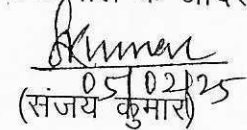 Skumar
05/02/25
(संजय कुमार)